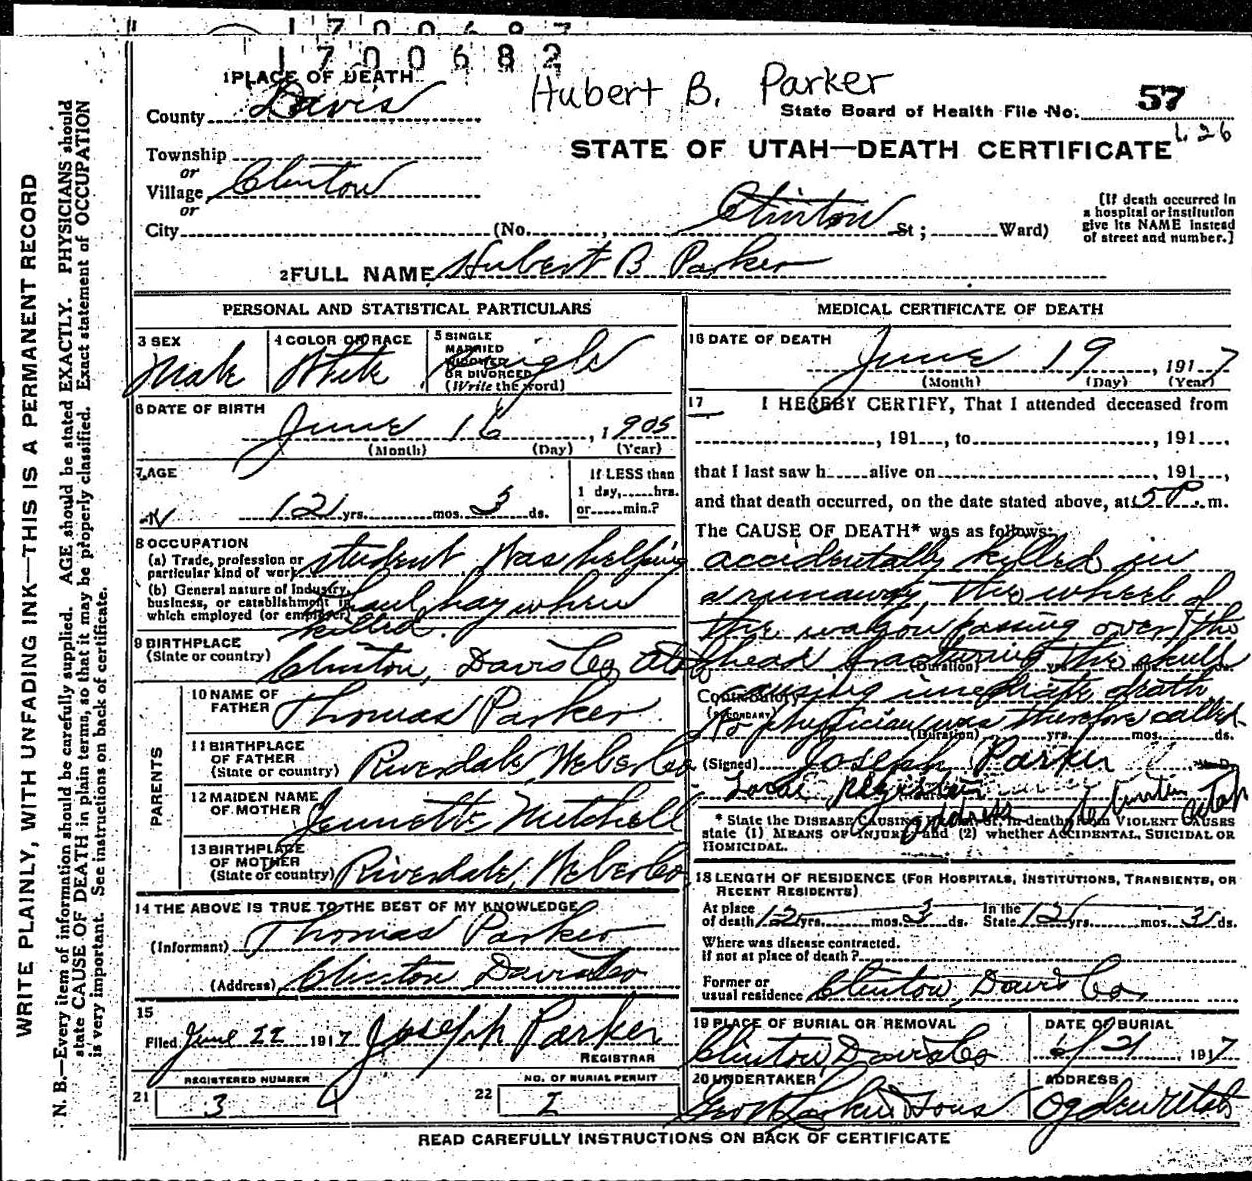 1700682
1 PLACE OF DEATH
Hubert B. Parker
County Davis
State Board of Health File No. 57
1.26
STATE OF UTAH—DEATH CERTIFICATE
Township
or
Village Clinton
or
City (No. , Clinton St; Ward)
[If death occurred in
a hospital or institution
give its NAME instead
of street and number.]
2 FULL NAME Hubert B Parker
PERSONAL AND STATISTICAL PARTICULARS
3 SEX
Male
4 COLOR OR RACE
White
5 SINGLE
MARRIED
WIDOWED
OR DIVORCED
(Write the word)
Single
6 DATE OF BIRTH
June 16, 1905
(Month) (Day) (Year)
7 AGE
12 yrs. mos. 3 ds.
If LESS than
1 day, hrs.
or min.?
8 OCCUPATION
(a) Trade, profession or
particular kind of work student Was helping
(b) General nature of Industry,
business, or establishment in
which employed (or employer)
haul hay when
killed.
9 BIRTHPLACE
(State or country) Clinton, Davis Co Utah
PARENTS
10 NAME OF
FATHER Thomas Parker
11 BIRTHPLACE
OF FATHER
(State or country) Riverdale, Weber Co
12 MAIDEN NAME
OF MOTHER Jennette Mitchell
13 BIRTHPLACE
OF MOTHER
(State or country) Riverdale, Weber Co
14 THE ABOVE IS TRUE TO THE BEST OF MY KNOWLEDGE
(Informant) Thomas Parker
(Address) Clinton Davis Co
15
Filed June 22 1917 Joseph Parker
REGISTRAR
21 REGISTERED NUMBER
3
22 NO. OF BURIAL PERMIT
MEDICAL CERTIFICATE OF DEATH
16 DATE OF DEATH
June 19, 1917
(Month) (Day) (Year)
17 I HEREBY CERTIFY, That I attended deceased from
, 191 , to , 191 ,
that I last saw h alive on , 191 ,
and that death occurred, on the date stated above, at 5 P. m.
The CAUSE OF DEATH* was as follows:
accidentally killed in
a runaway, the wheel of
the wagon passing over the
head fracturing the skull
(Duration) yrs. mos. ds.
causing imediate death
Contributory
(SECONDARY)
No physician was therefore called
(Duration) yrs. mos. ds.
(Signed) Joseph Parker
Local Registrar
address Clinton Utah
* State the DISEASE CAUSING DEATH, or, in deaths from VIOLENT CAUSES
state (1) MEANS OF INJURY and (2) whether ACCIDENTAL, SUICIDAL OR
HOMICIDAL.
18 LENGTH OF RESIDENCE (FOR HOSPITALS, INSTITUTIONS, TRANSIENTS, OR
RECENT RESIDENTS)
At place
of death 12 yrs. mos. 3 ds. In the
State 12 yrs. mos. 3 ds.
Where was disease contracted.
If not at place of death?
Former or
usual residence Clinton, Davis Co.
19 PLACE OF BURIAL OR REMOVAL
Clinton, Davis Co
DATE OF BURIAL
6/21, 1917
20 UNDERTAKER
Geo W Larkin & Sons
ADDRESS
Ogden Utah
READ CAREFULLY INSTRUCTIONS ON BACK OF CERTIFICATE
WRITE PLAINLY, WITH UNFADING INK—THIS IS A PERMANENT RECORD
N. B.—Every item of information should be carefully supplied. AGE should be stated EXACTLY. PHYSICIANS should
state CAUSE OF DEATH in plain terms, so that it may be properly classified. Exact statement of OCCUPATION
is very important. See instructions on back of certificate.